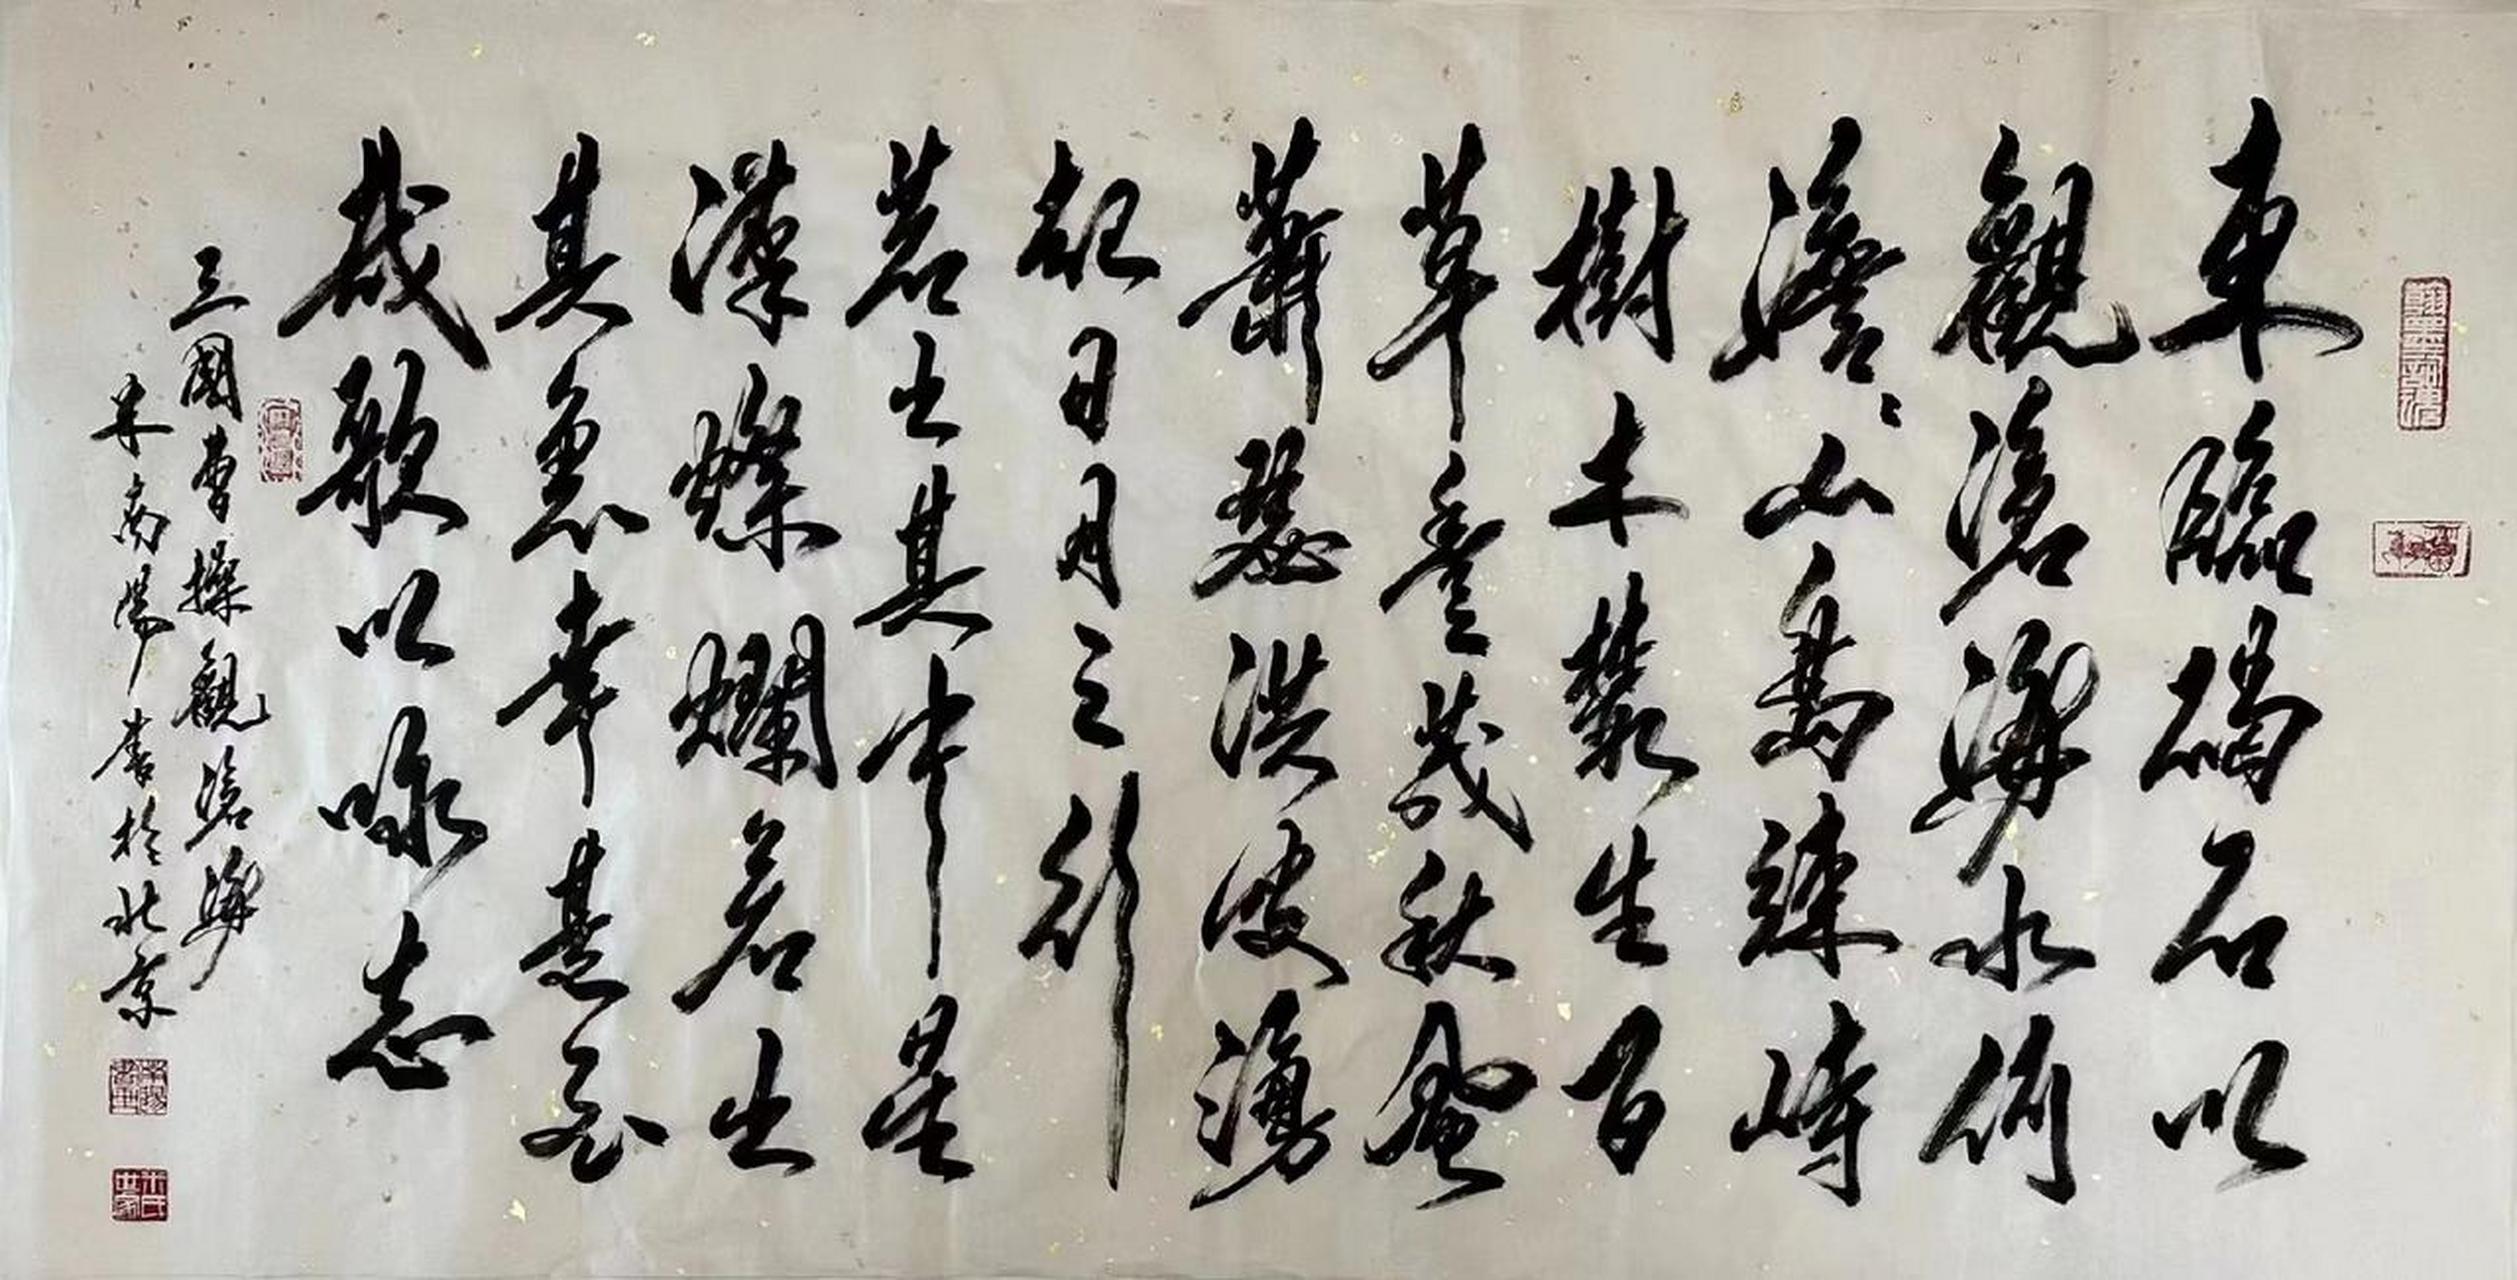 東臨碣石以
觀滄海水何
澹々山島竦峙
樹木叢生百
草豐茂秋風
蕭瑟洪波湧
起日月之行
若出其中星
漢燦爛若出
其裏幸甚至
哉歌以咏志
三國曹操觀滄海
米南陽書於北京
米氏世家